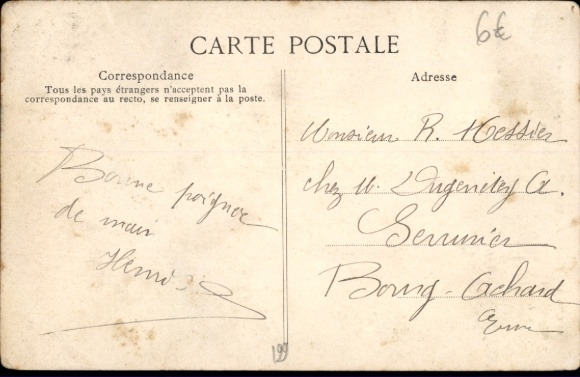 6€
CARTE POSTALE
Correspondance
Tous les pays étrangers n'acceptent pas la
correspondance au recto, se renseigner à la poste.
Adresse
Bonne poignée
de main
Henri
Monsieur R. Messier
chez M.
Serrurier
Bourg-Achard
Eure